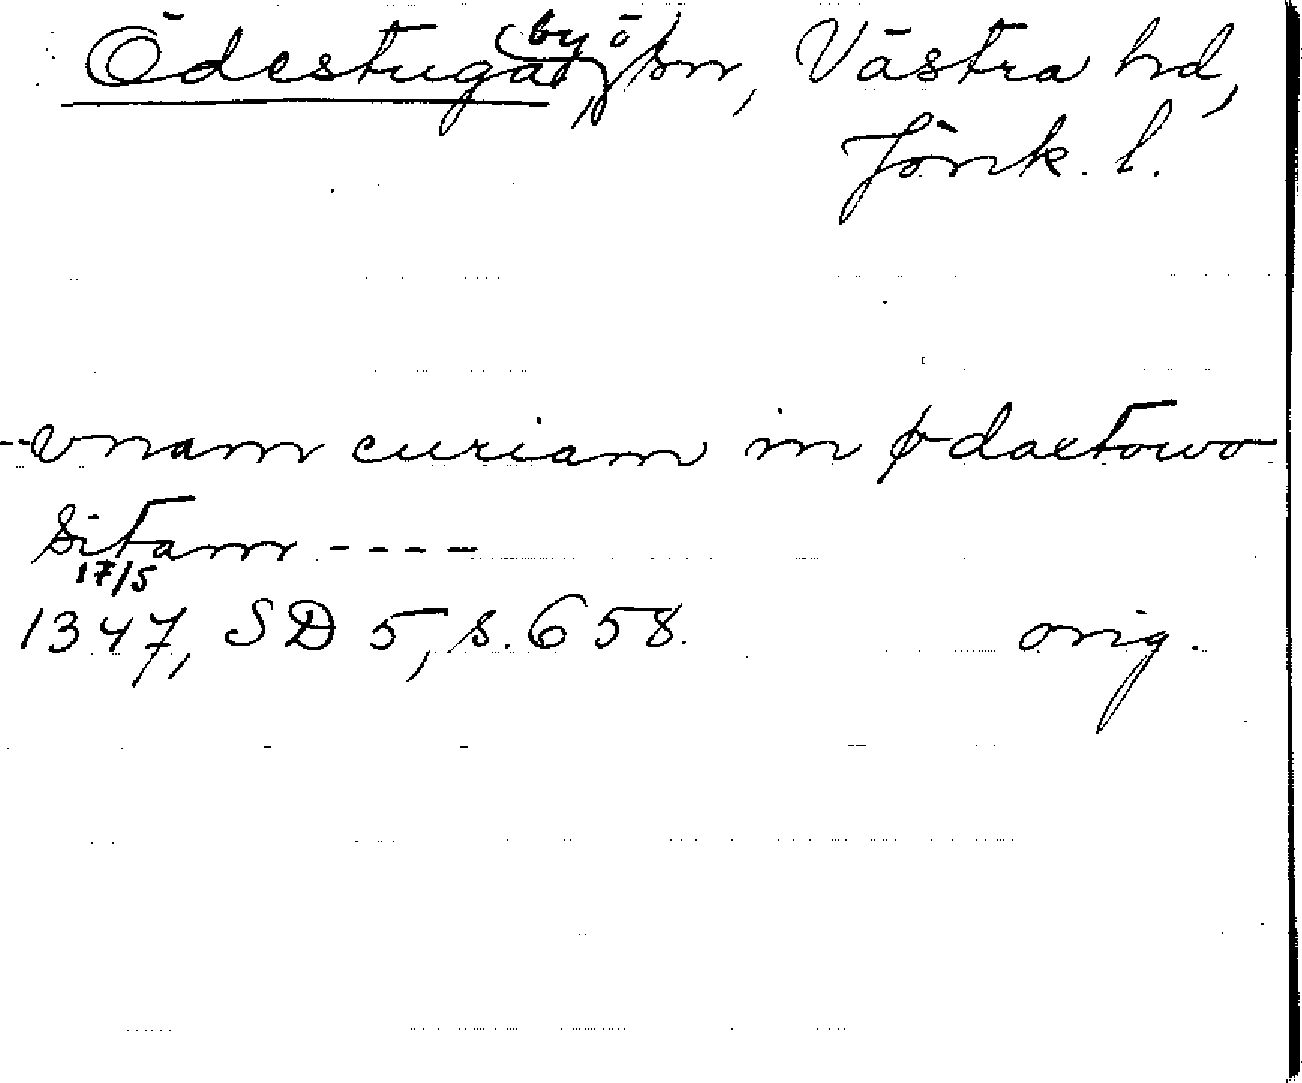 Ödestuga, by, ö sn, Västra hd,
Jönk. l.
--vnam curiam in ødaetowo
sitam ----
17/5
1347, SD 5, s. 658. orig.